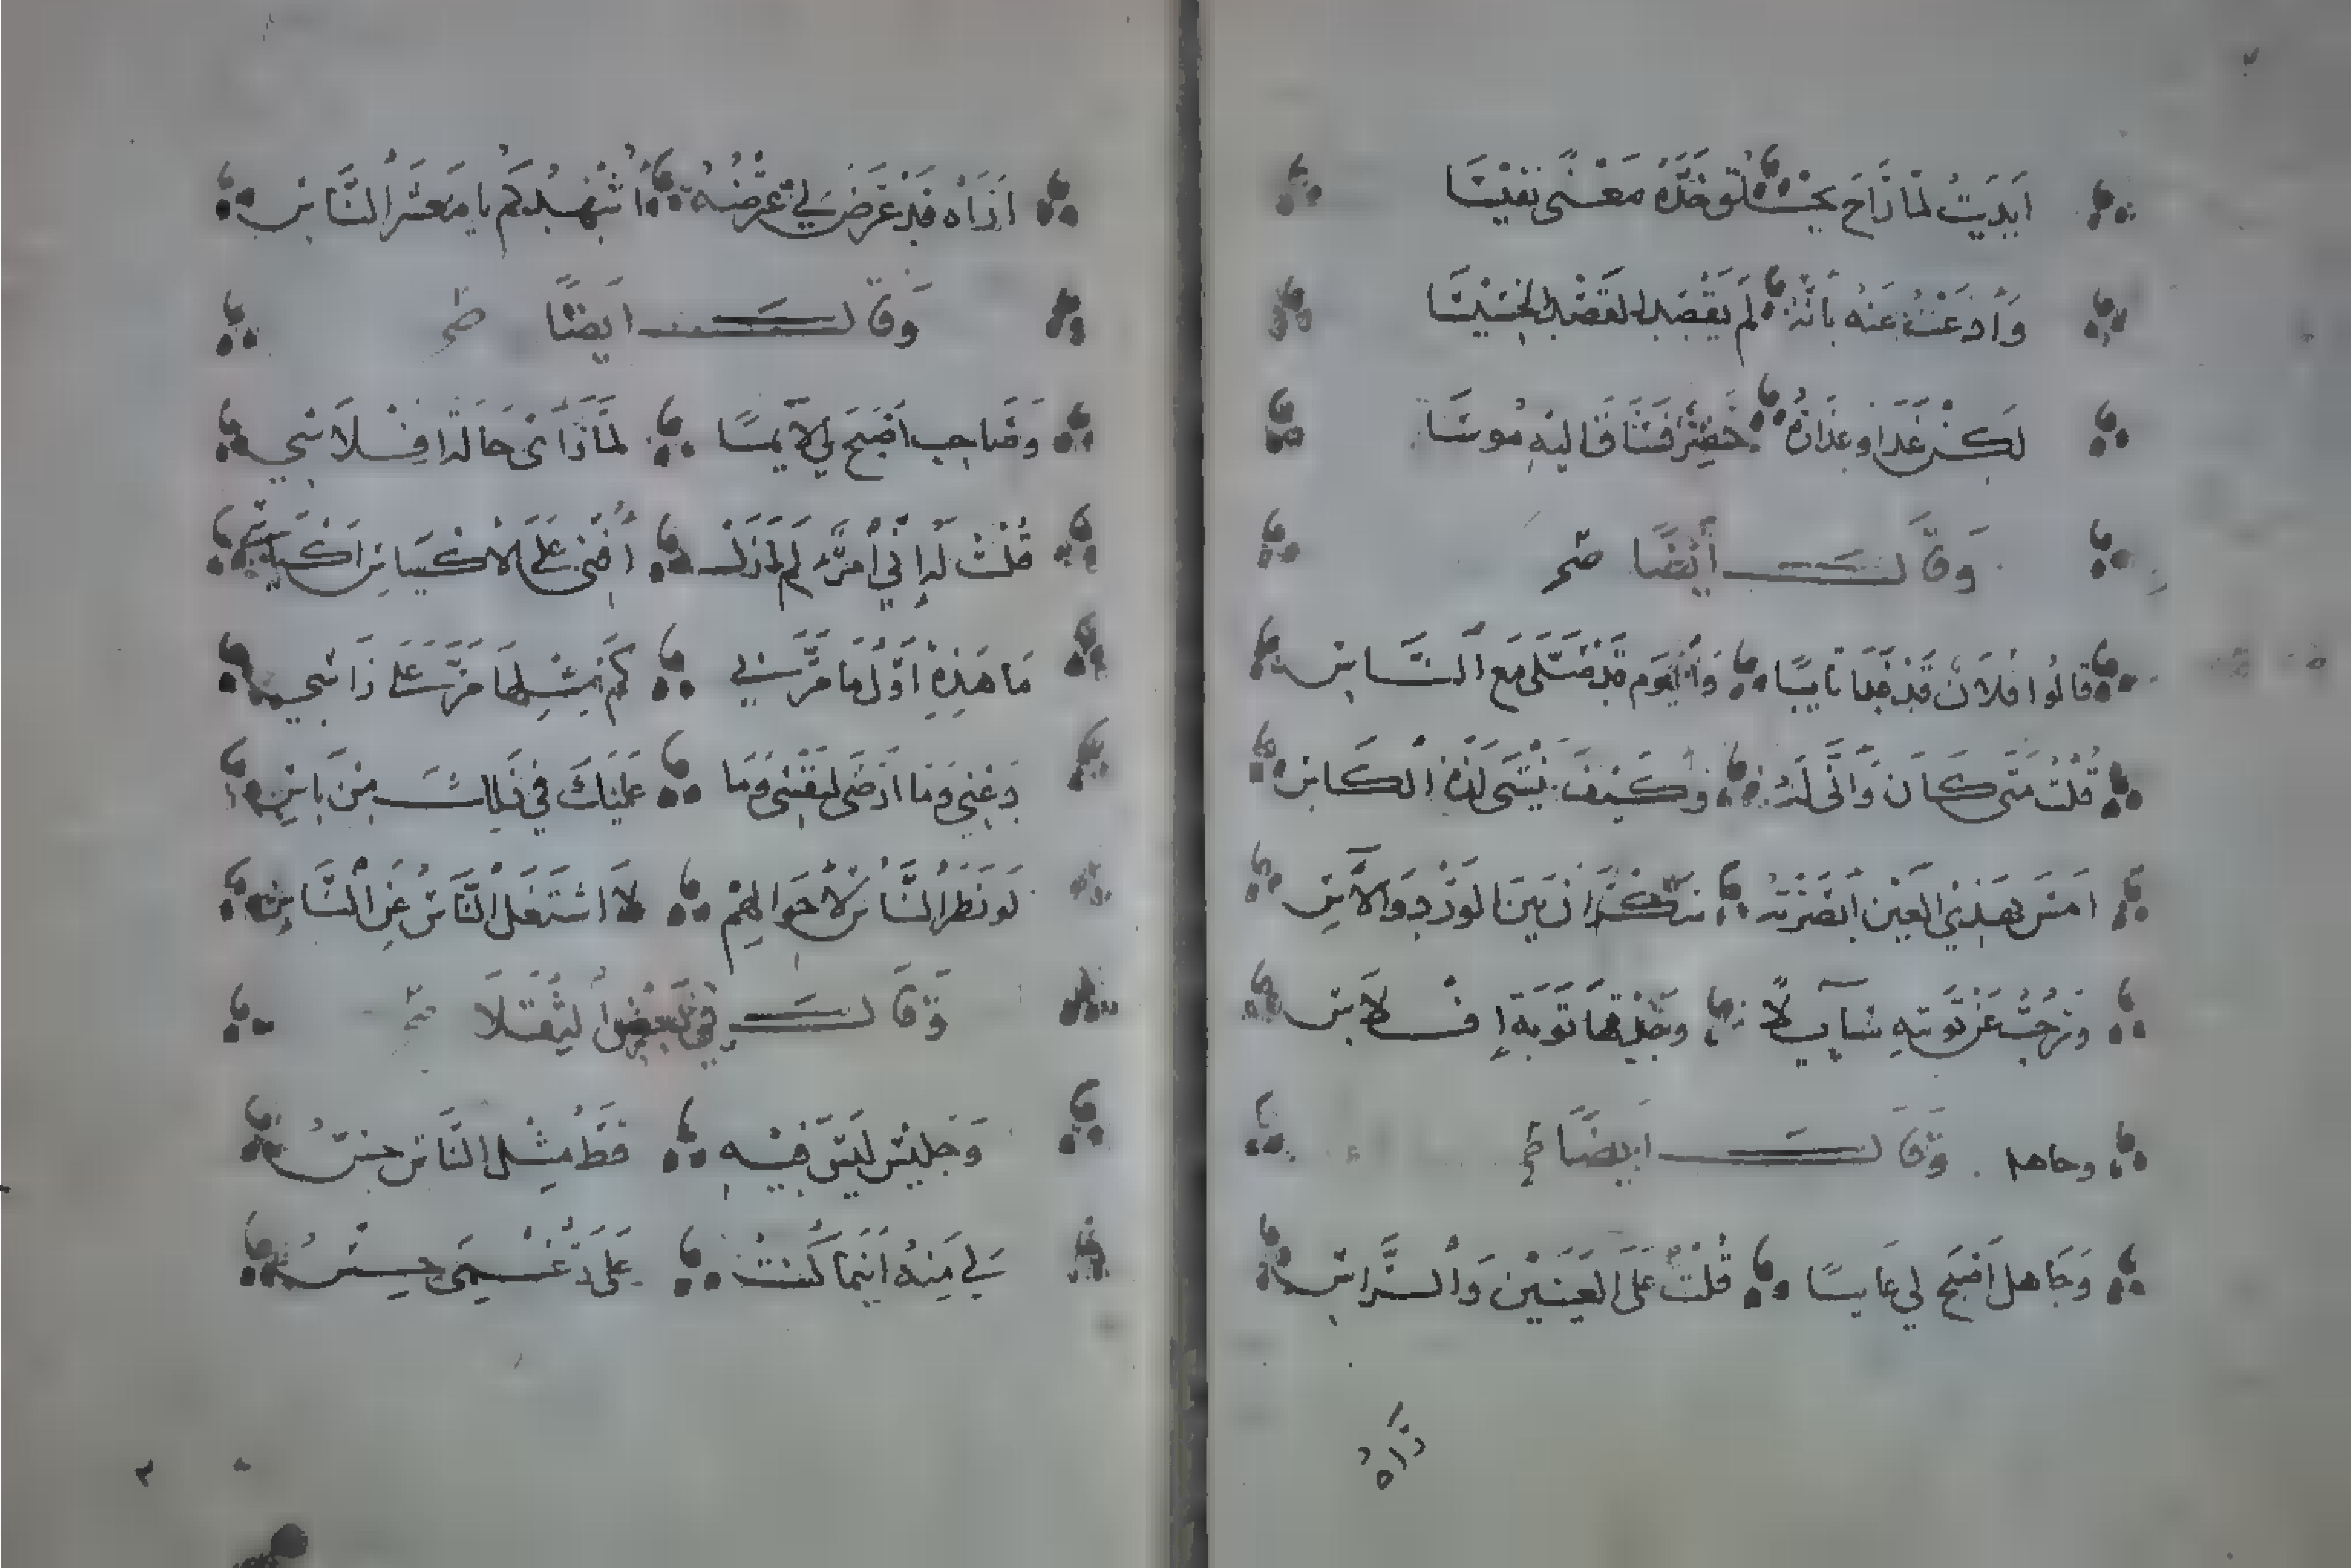 ابديت لما زاح خده معنى نفيسا
وادعت عنه بانه لم يقصد القصد الخسيسا
لكن غدا وعذاره خضر فساق اليه موسى
وقال أيضا
قالوا فلان قد غدا تايبا واليوم قد صلى مع الناس
قلت متى كان وانى له وكيف ينسى لذة الكاس
امس بهذي العين ابصرته سكران بين الورد والاس
ورحت عن توبته سايلا وجدتها توبة افلاس
وجاهل وقال ايضا
وجاهل اصبح لي عايبا قلت على العينين والراس
اراه قد عرض لي عرضه اشهدكم يا معشر الناس
وقال ايضا
وصاحب اصبح لي لايما لما راى حالة افلاسي
قلت له اني امرؤ لم ازل افني على الاكياس اكياسي
ما هذه اول ما مر بي كم مثلها مر على راسي
دعني وما ارضى لنفسي وما عليك في ذلك من باس
لو نظر الناس لاحوالهم لاشتغل الناس عن الناس
وقال في بعض الثقلا
وجليس ليس فيه قط مثل الناس حس
لي منه اينما كنت على رغمي حبس